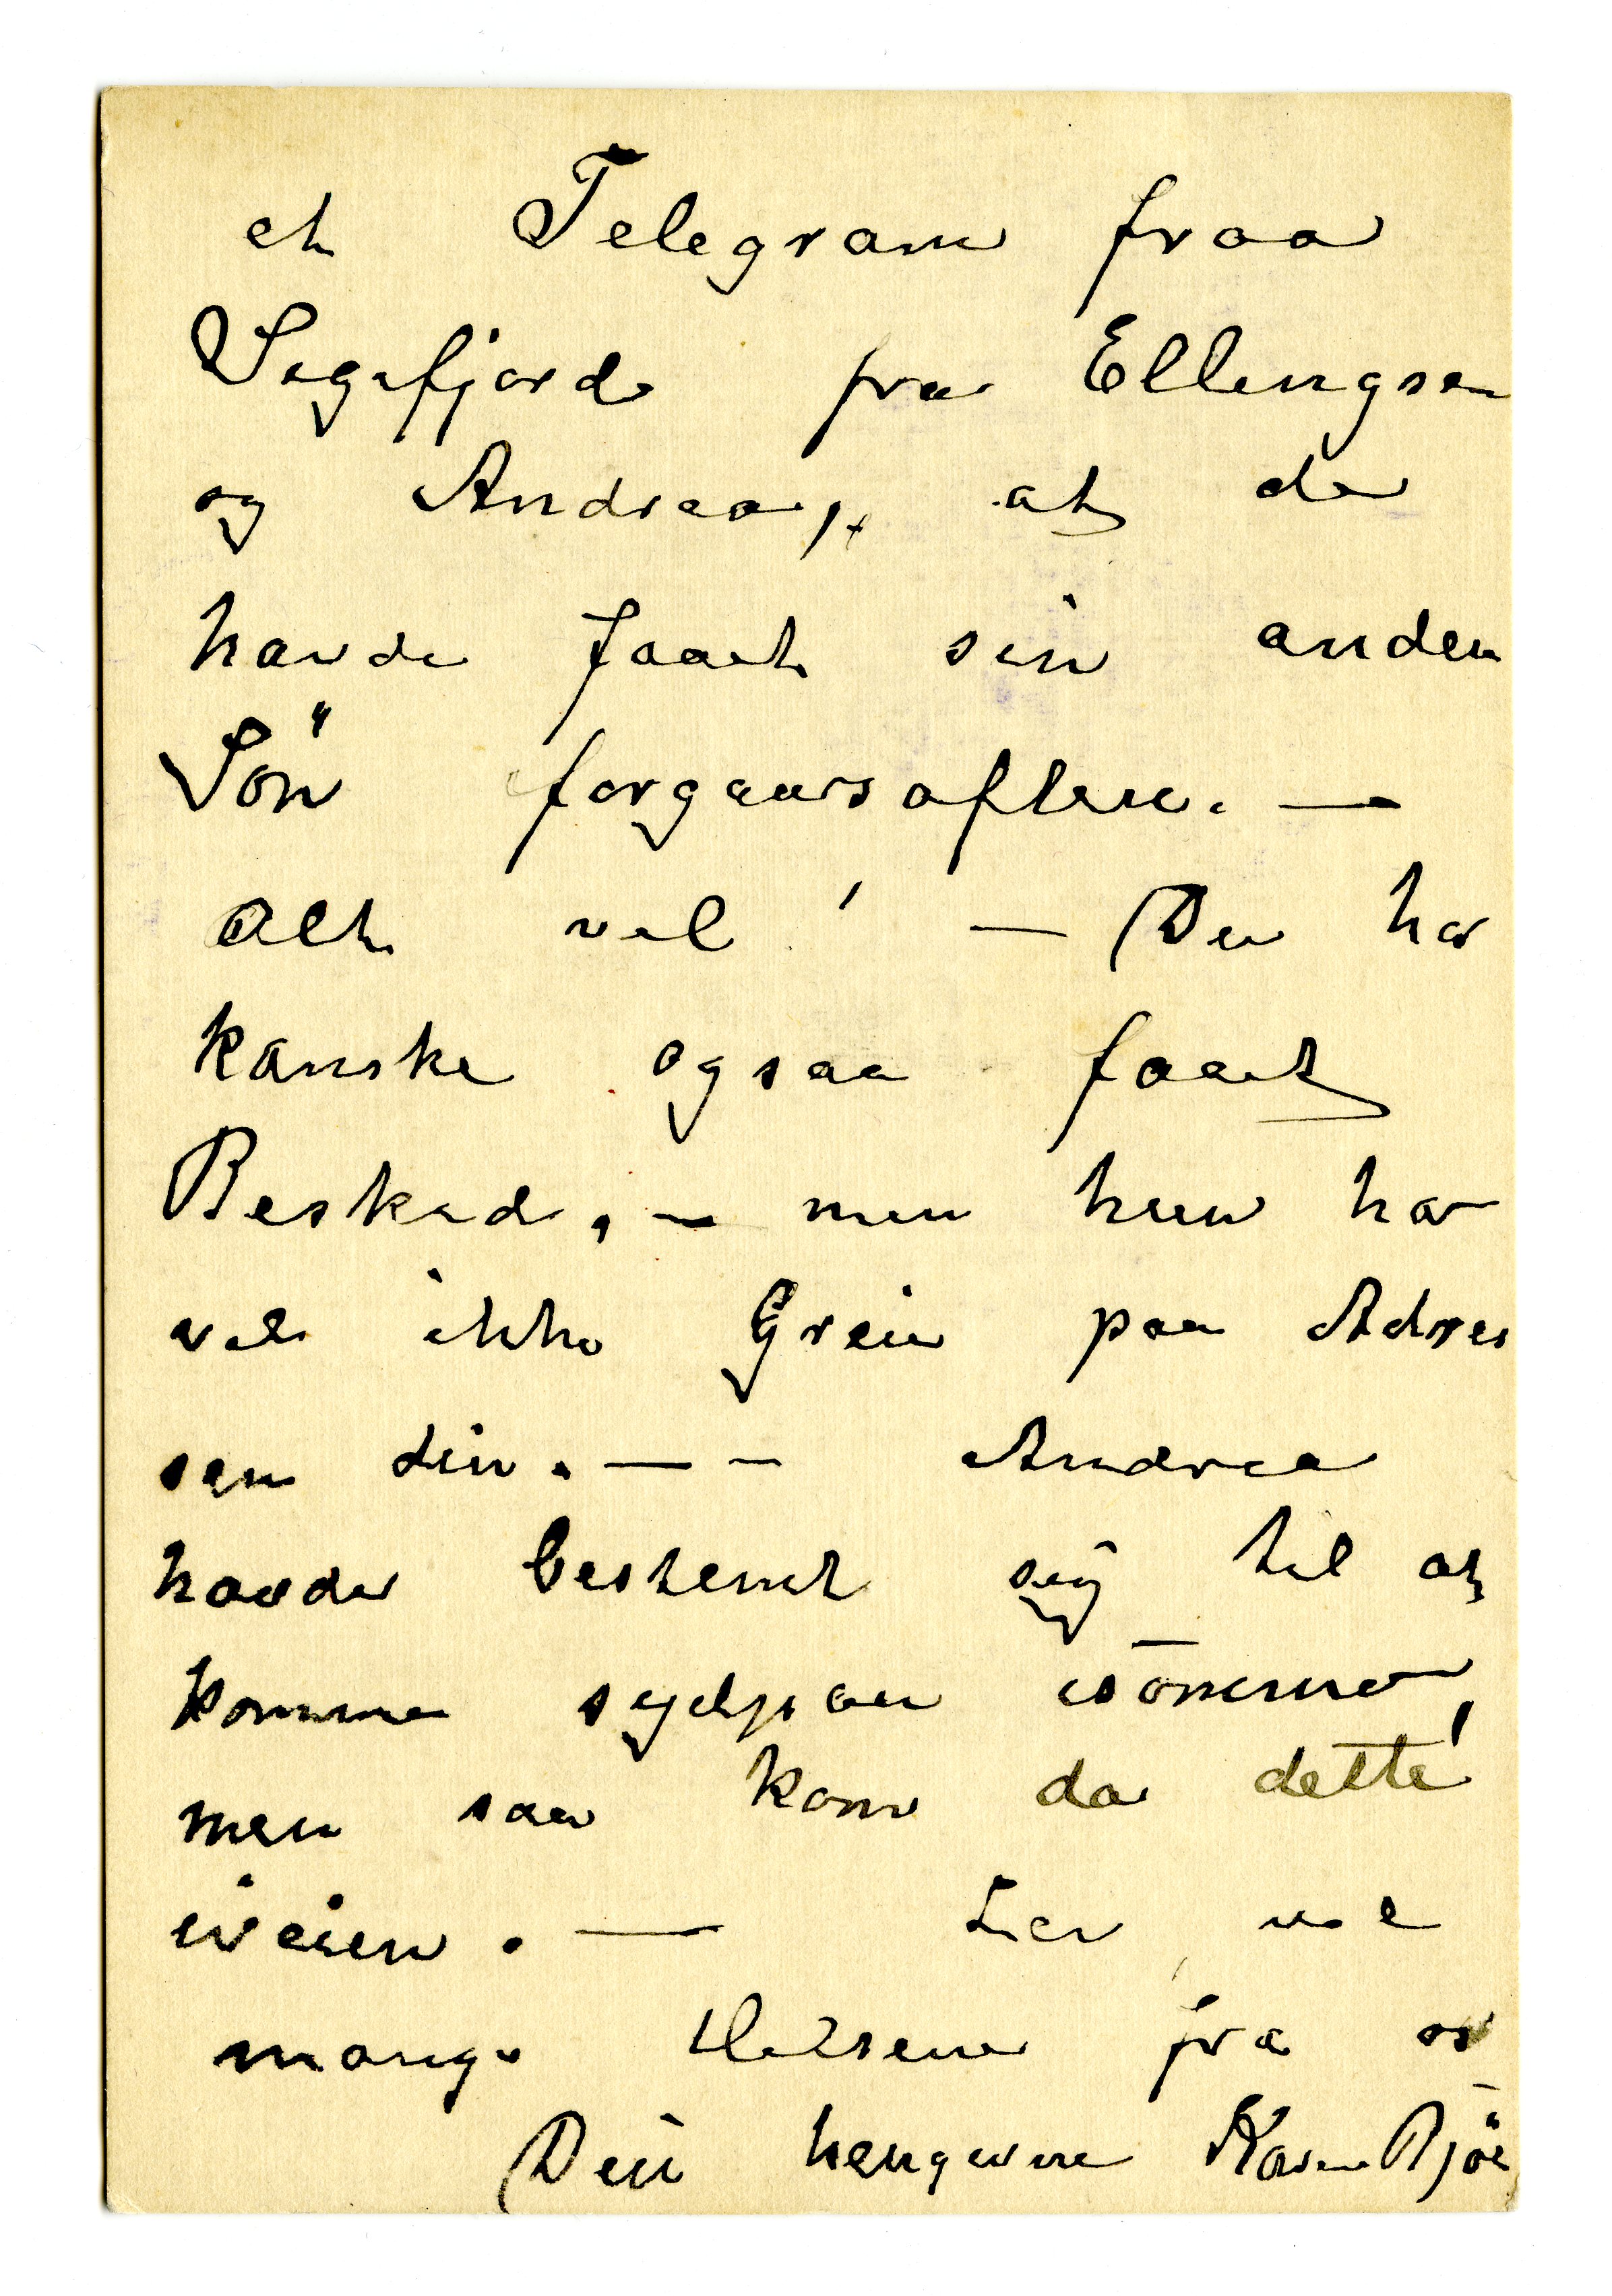 et Telegram fraa
Segefjord fra Ellingsen
og Andrea, at de
havde faaet sin anden
Sön forgaarsaften. —
Alt vel! — Du har
kanske ogsaa faaet
Besked, — men hun har
vel ikke Grein paa Adres
sen din. — — Andrea
havde bestemt sig til at
komme sydpaa isommer,
men saa kom da dette
iveien. — Lev vel
mange Helsener fra os
Din hengivne Karen Bjöe